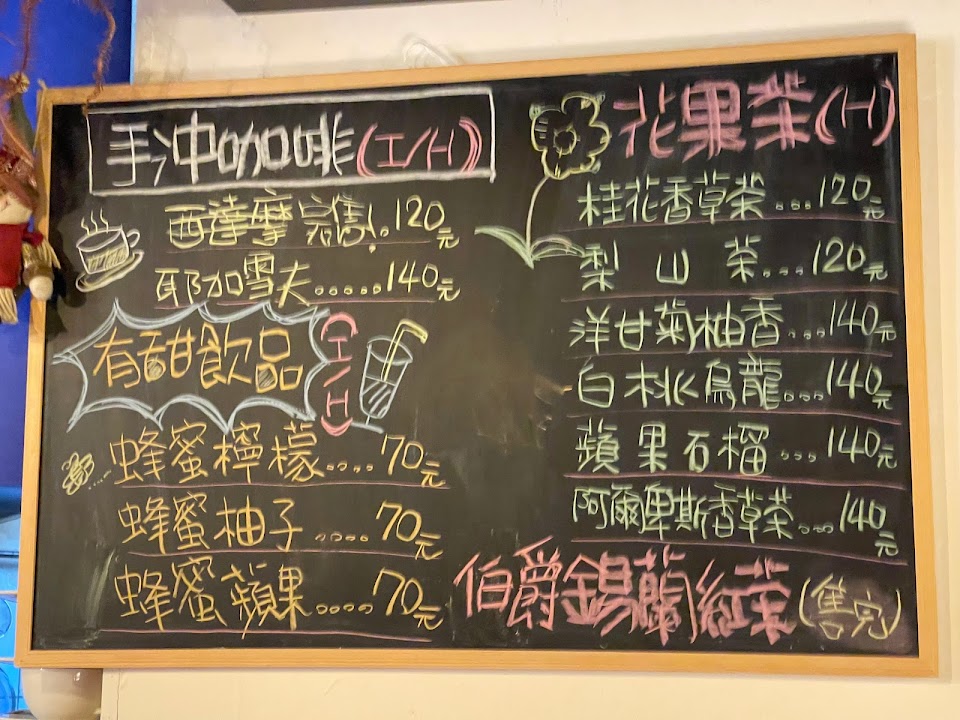 手冲咖啡(I/H)
西達摩 完售!.120元
耶加雪夫.....140元
有甜飲品(I/H)
蜂蜜檸檬....70元
蜂蜜柚子....70元
蜂蜜蘋果....70元
花果茶(H)
桂花香草茶...120元
梨山茶...120元
洋甘菊柚香...140元
白桃烏龍...140元
蘋果石榴...140元
阿爾卑斯香草茶...140元
伯爵錫蘭紅茶(售完)